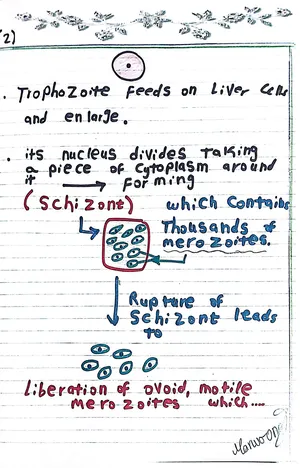 2)
. Trophozoite feeds on liver cells
and enlarge.
. its nucleus divides taking
a piece of cytoplasm around
it → forming
(Schizont) which contains
Thousands of
merozoites.
Rupture of
Schizont leads
to
liberation of ovoid, motile
merozoites which....